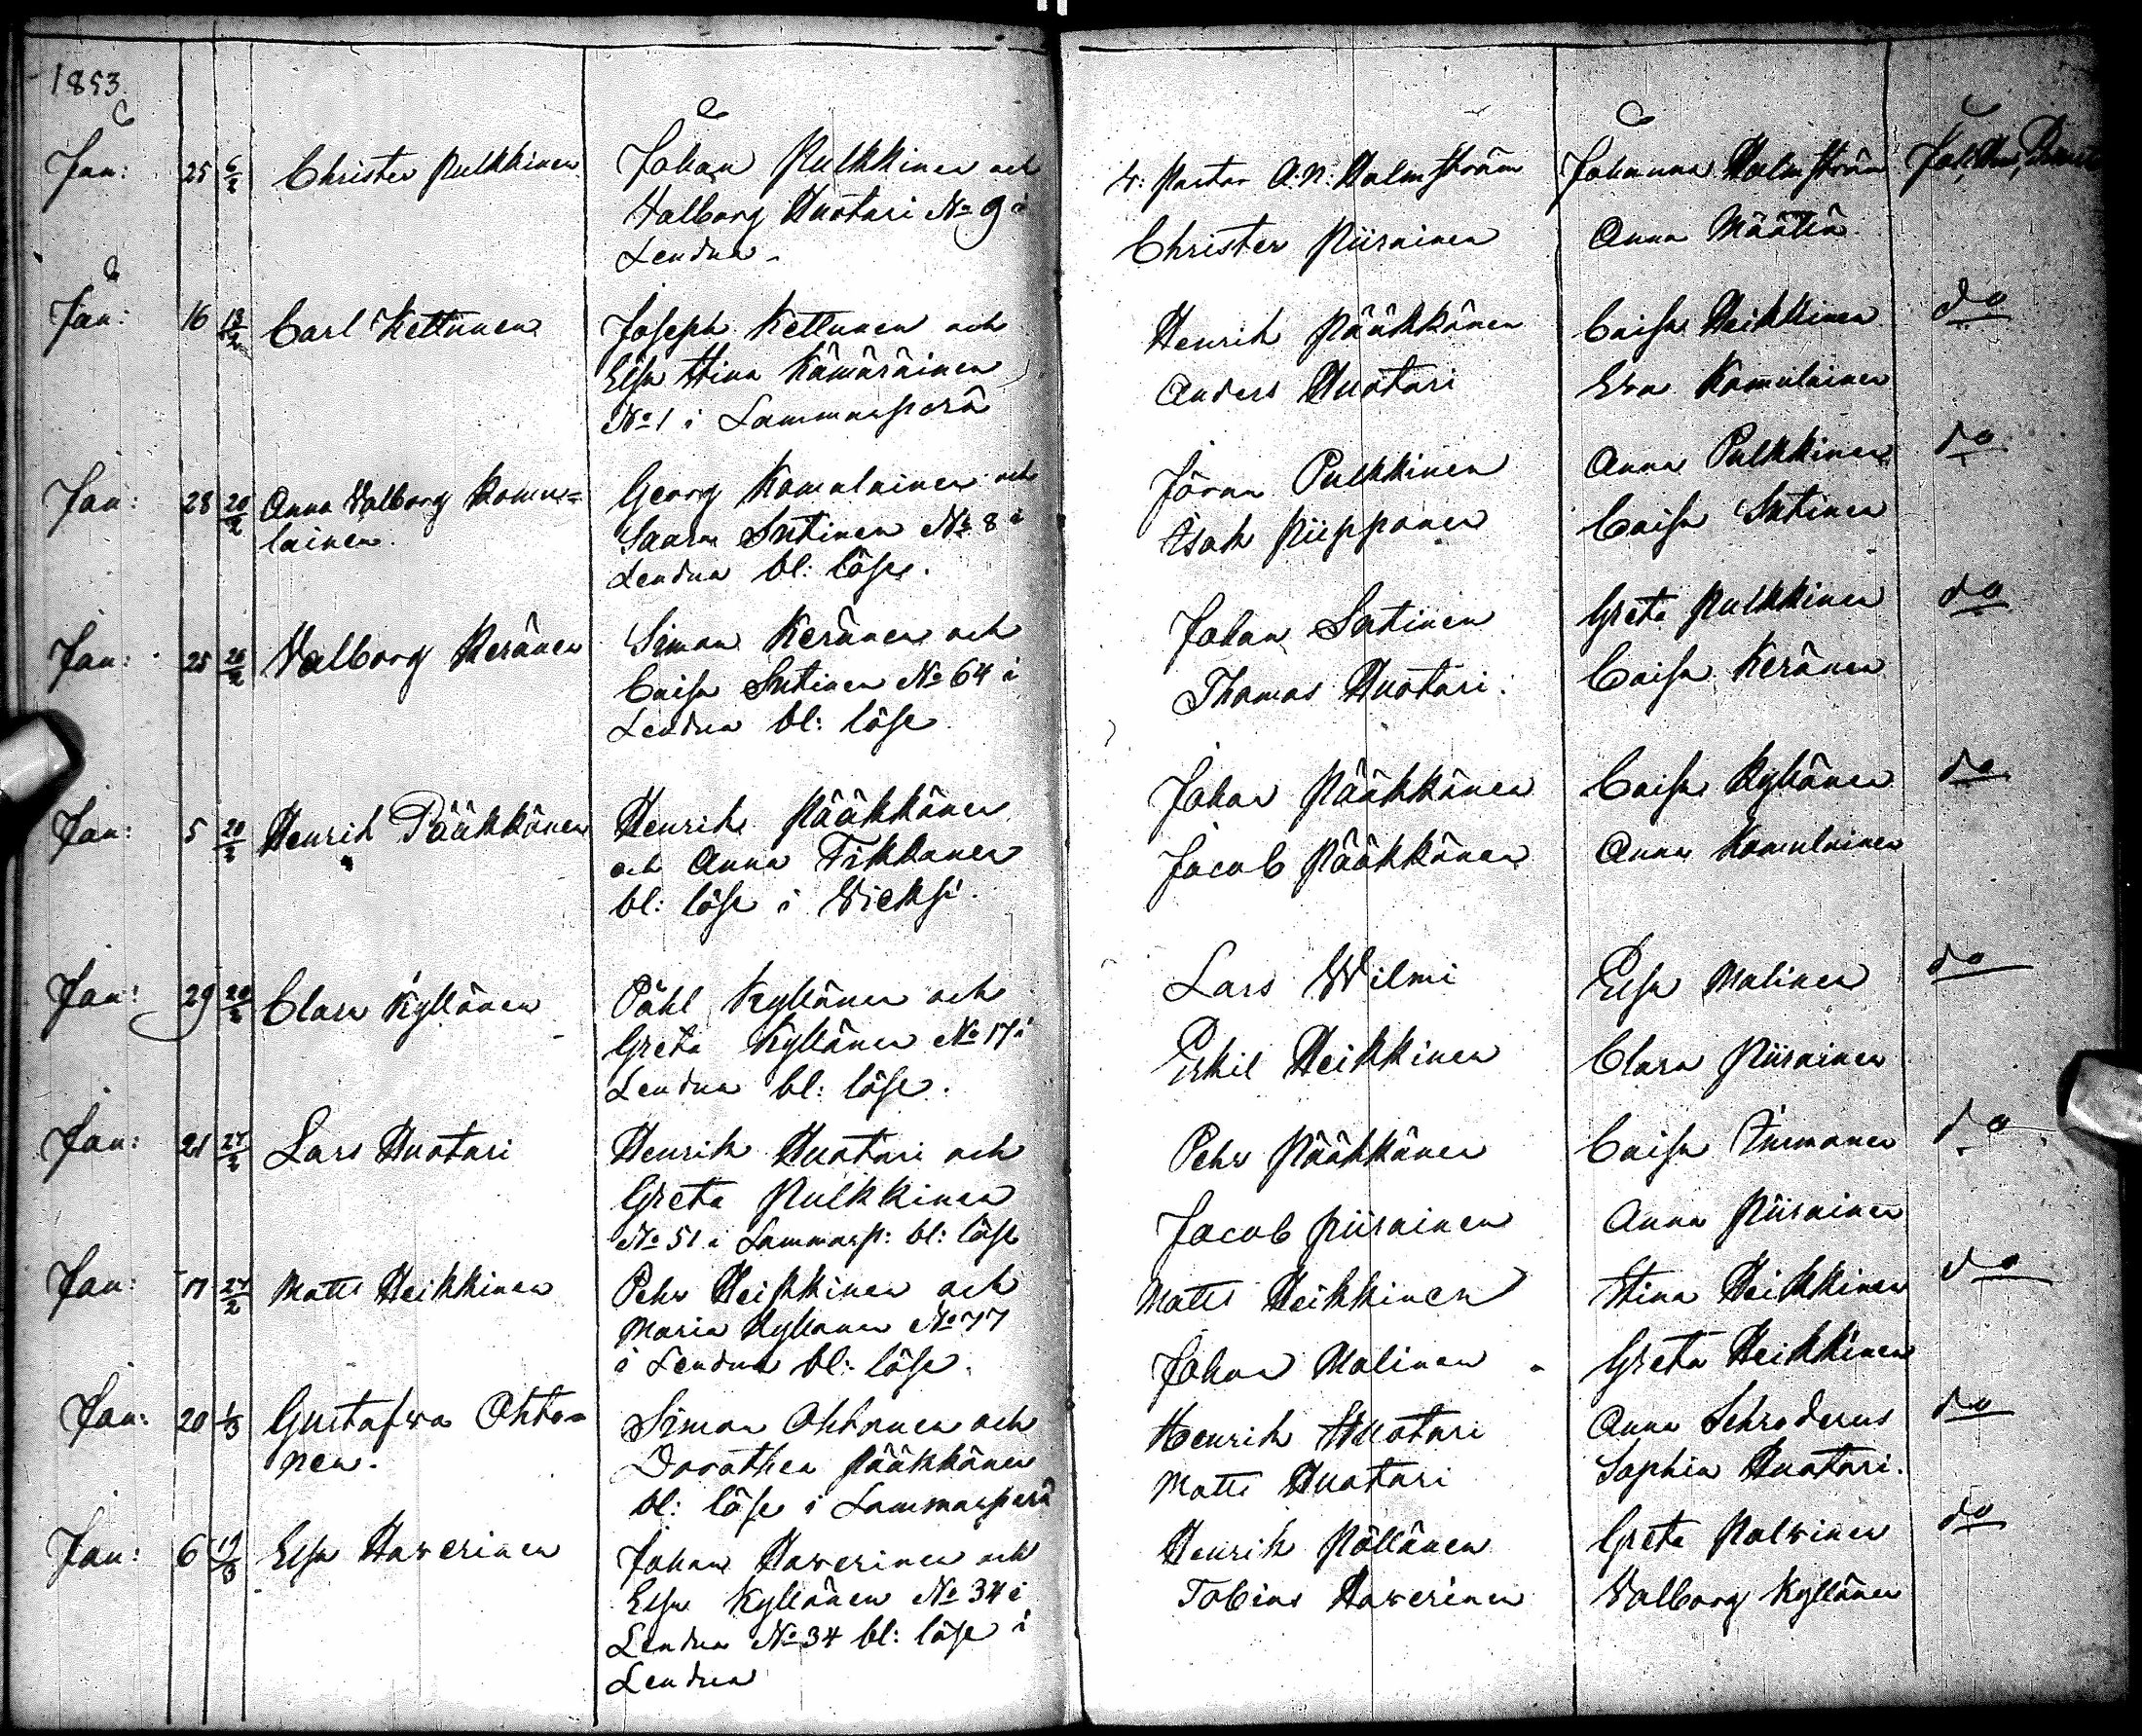 1853
Jan: 25 6/2 Christer Pulkkinen
Johan Pulkkinen och
Valborg Huotari No 9 i
Lendua
Jan: 16 13/2 Carl Kettunen
Joseph Kettunen och
Elsa Stina Kämäräinen
No 1 i Lammasperä
Jan: 28 20/2 Anna Valborg Komu=
lainen
Georg Komulainen och
Saara Sutinen No 8 i
Lendua bl: löse.
Jan: 25 20/2 Valborg Keränen
Simon Keränen och
Caisa Sutinen No 64 i
Lendua bl: löse
Jan: 5 20/2 Henrik Pääkkönen
Henrik Pääkkönen
och Anna Tikkanen
bl: löse i Wieksi.
Jan: 29 20/2 Clara Kyllönen
Påhl Kyllönen och
Greta Kyllönen No 17 i
Lendua bl: löse.
Jan: 21 27/2 Lars Huotari
Henrik Huotari och
Greta Pulkkinen
No 51 i Lammasp: bl: löse
Jan: 17 27/2 Matts Heikkinen
Pehr Heikkinen och
Maria Kyllönen No 77
i Lendua bl: löse.
Jan: 20 1/3 Gustafva Ohto=
nen.
Simon Ohtonen och
Dorothea Pääkkönen
bl: löse i Lammasperä
Jan: 6 Elsa Haverinen
Johan Haverinen och
Elsa Kyllönen No 34 i
Lendua No 34 bl: löse i
Lendua
v: Pastor A. N: Holmström Johanna Holmström
Christer Piirainen Anna Määttä
Henrik Pääkkönen Caisa Heikkinen do
Anders Huotari Eva Komulainen
Jöran Pulkkinen Anna Pulkkinen do
Isak Piipponen Caisa Sutinen
Johan Sutinen Greta Pulkkinen do
Thomas Huotari Caisa Keränen
Johan Pääkkönen Caisa Kyllönen do
Jacob Pääkkönen Anna Komulainen
Lars Wilmi Elsa Malinen do
Eskil Heikkinen Clara Piirainen
Pehr Pääkkönen Caisa Turmanen do
Jacob Piirainen Anna Piirainen
Matts Heikkinen Stina Heikkinen do
Johan Malinen Greta Heikkinen
Henrik Huotari Anna Schroderus do
Matts Huotari Sophia Huotari.
Henrik Pöllänen Greta Polvinen do
Tobias Haverinen Valborg Kyllönen